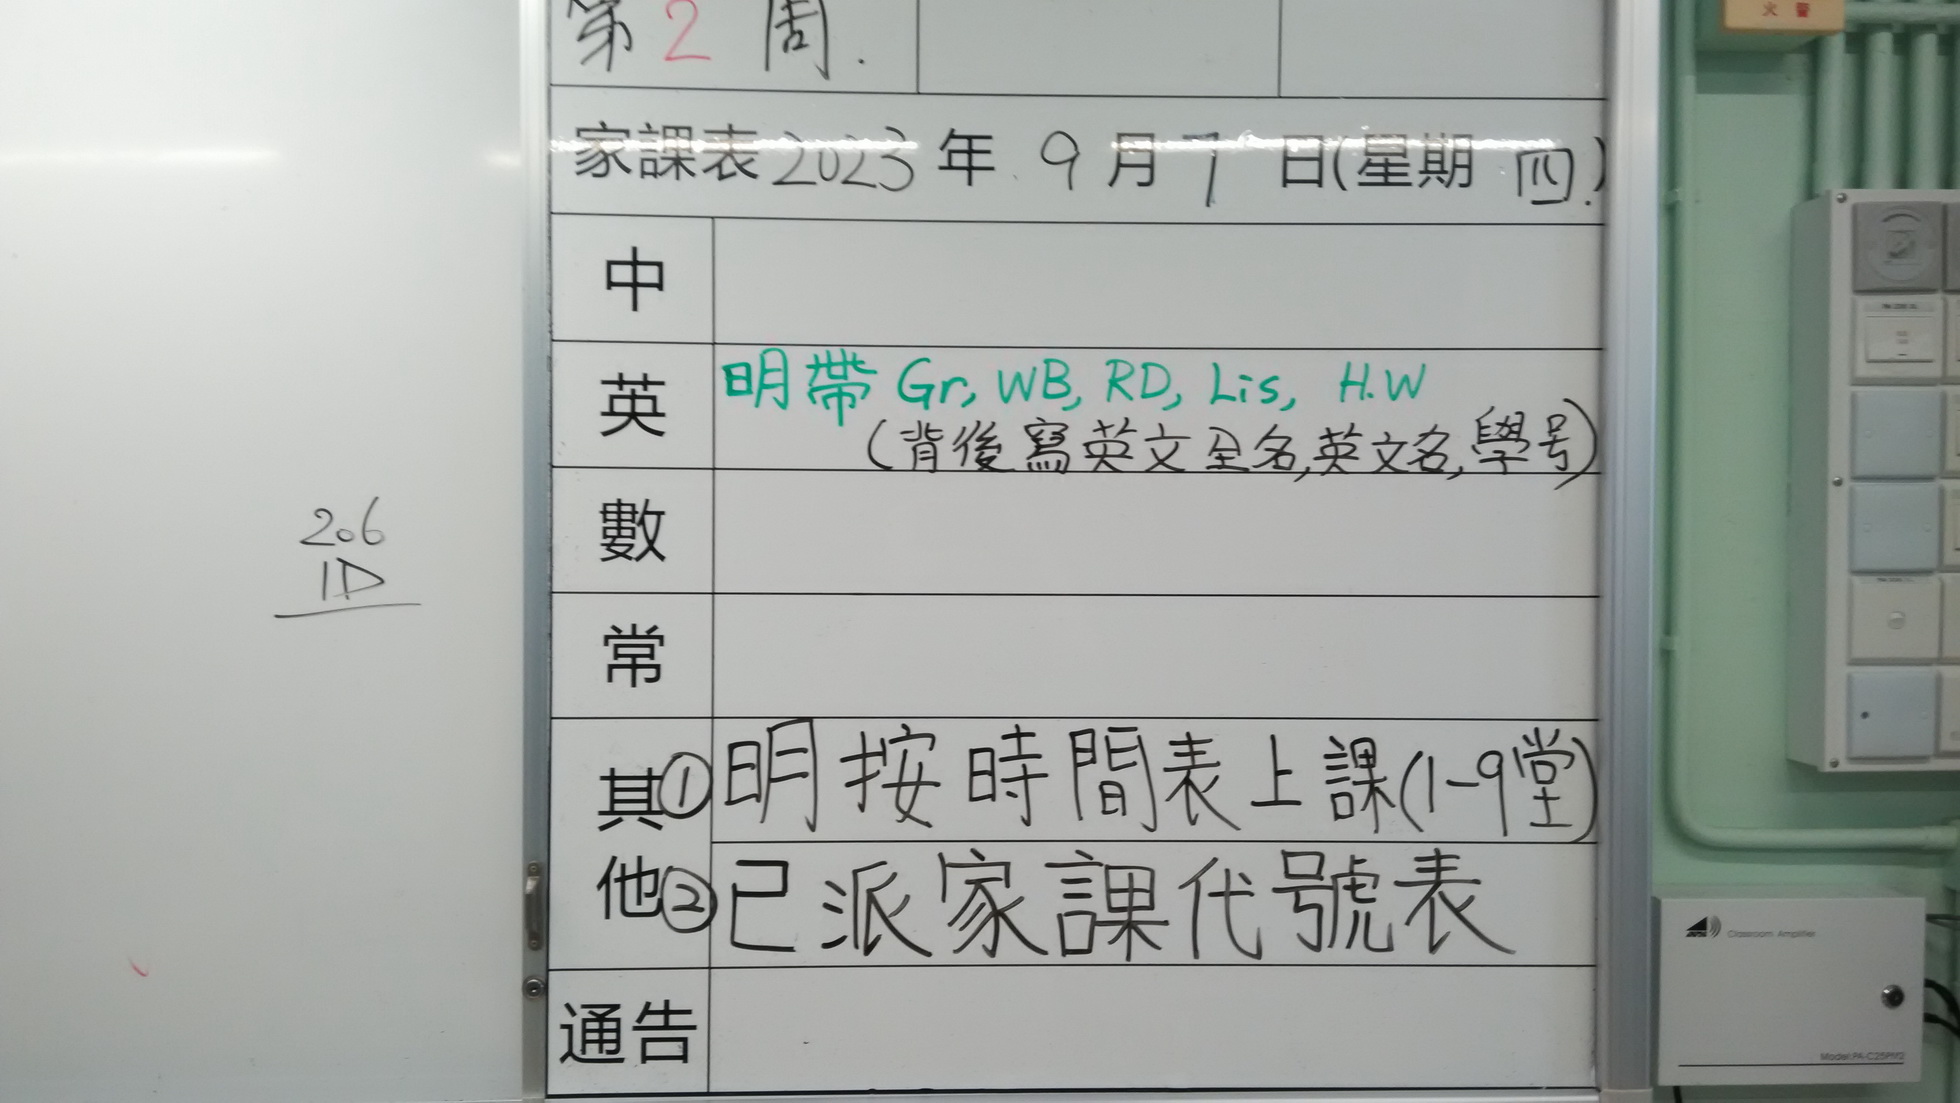 第2周.
家課表2023年9月7日(星期四.)
中
英
明帶 Gr, WB, RD, Lis, H.W
(背後寫英文全名,英文名,學号)
數
常
其他
①明按時間表上課(1-9堂)
②已派家課代號表
通告
206
1D
火警
Classroom Amplifier
Model:PA-C25PM2